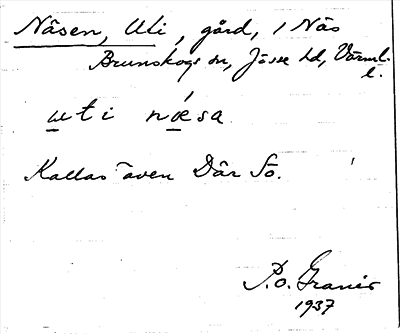 Näsen, Uti, gård, i Näs
Brunskogs sn, Jösse hd, Värml.
l.
uti nǽsa
Kallas även Där Sö.
P.o. Granis
1937